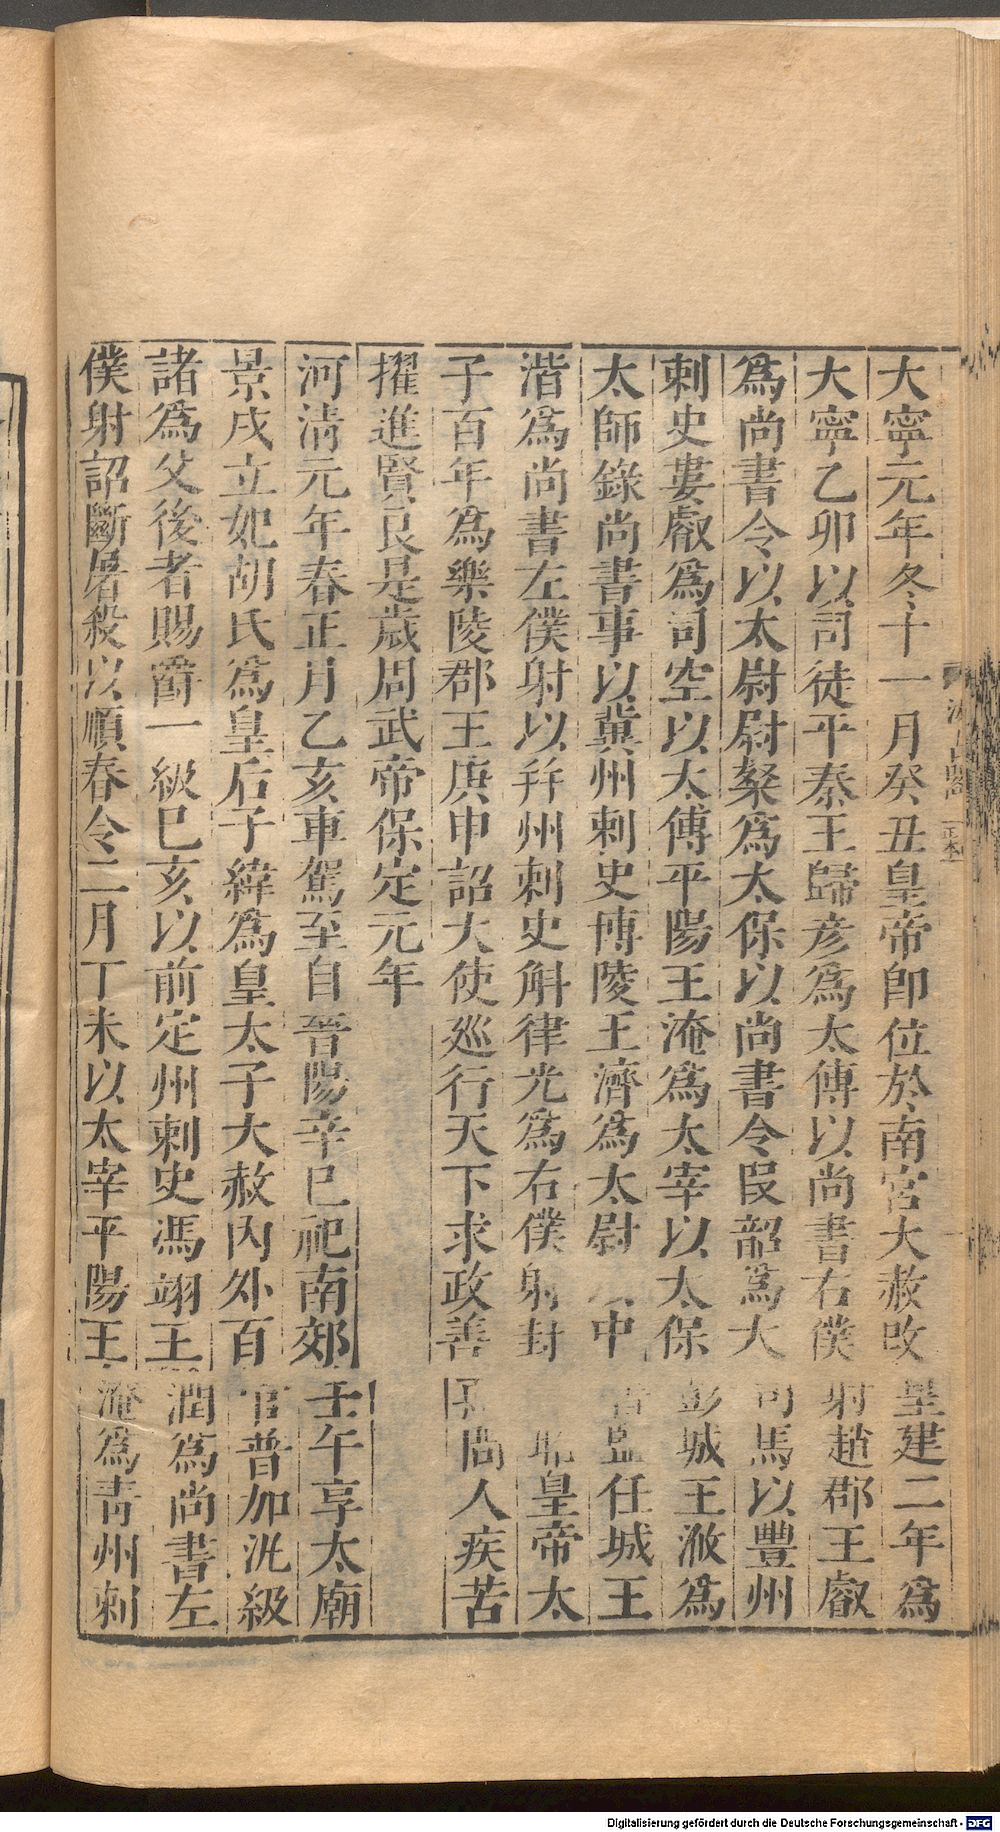 大寧元年冬十一月癸丑皇帝卽位於南宮大赦改皇建二年爲
大寧乙卯以司徒平秦王歸彥爲太傅以尚書右僕射趙郡王叡
爲尚書令以太尉尉粲爲太保以尚書令段韶爲大司馬以豐州
刺史婁叡爲司空以太傅平陽王淹爲太宰以太保彭城王浟爲
太師錄尚書事以冀州刺史博陵王濟爲太尉中監任城王
湝爲尚書左僕射以幷州刺史斛律光爲右僕射封皇帝太
子百年爲樂陵郡王庚申詔大使巡行天下求政善人疾苦
擢進賢良是歲周武帝保定元年
河淸元年春正月乙亥車駕至自晉陽辛巳祀南郊壬午享太廟
景戌立妃胡氏爲皇后子緯爲皇太子大赦內外百官普加汎級
諸爲父後者賜爵一級巳亥以前定州刺史馮翊王潤爲尚書左
僕射詔斷屠殺以順春令二月丁未以太宰平陽王淹爲靑州刺
Digitalisierung gefördert durch die Deutsche Forschungsgemeinschaft - DFG